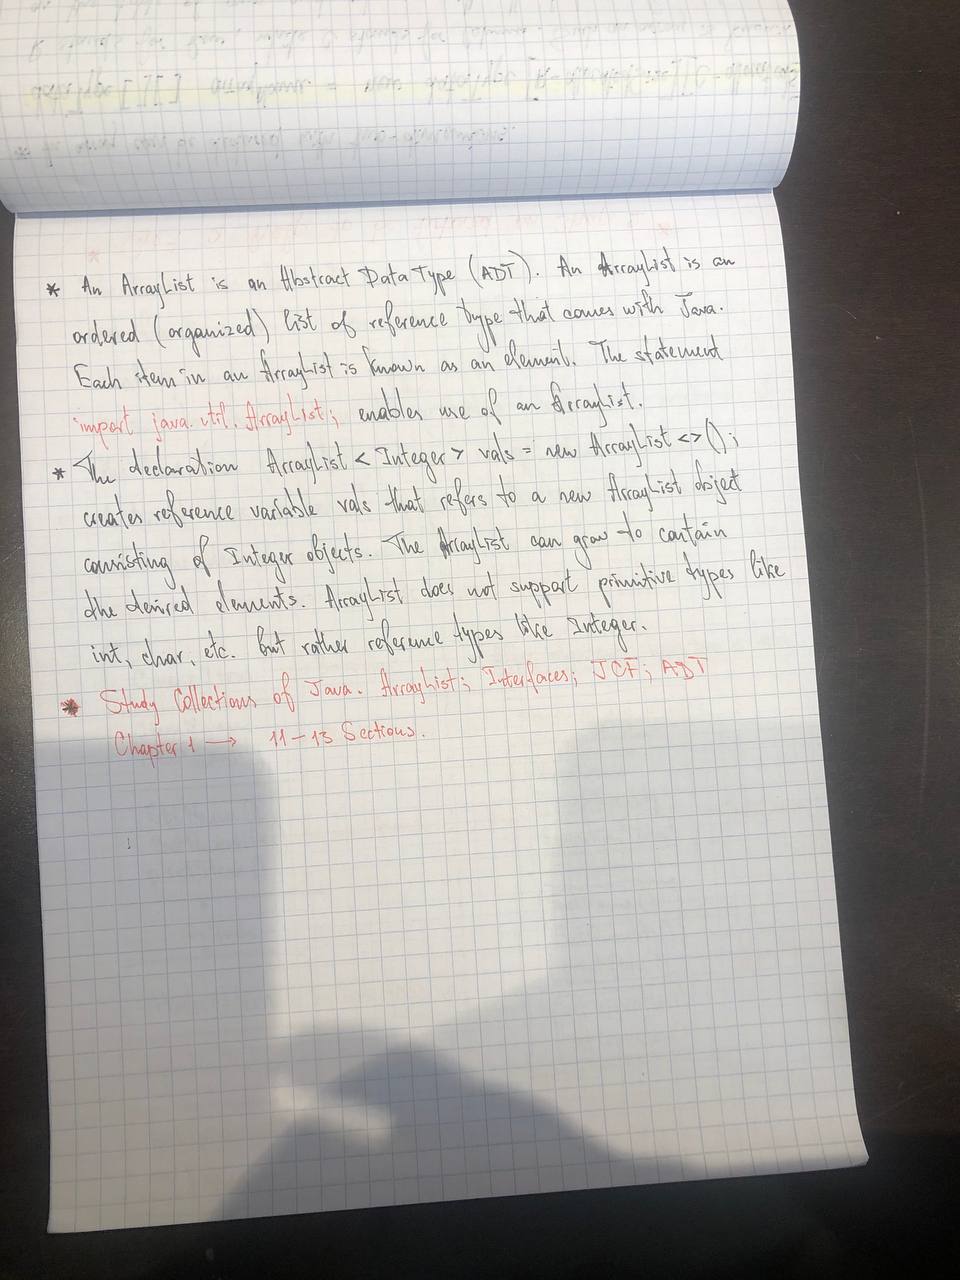 * An ArrayList is an Abstract Data Type (ADT). An ArrayList is an
ordered (organized) list of reference type that comes with Java.
Each item in an ArrayList is known as an element. The statement
import java.util.ArrayList; enables use of an ArrayList.
* The declaration ArrayList < Integer > vals = new ArrayList <> ();
creates reference variable vals that refers to a new ArrayList object
consisting of Integer objects. The ArrayList can grow to contain
the desired elements. ArrayList does not support primitive types like
int, char, etc. but rather reference types like Integer.
* Study Collections of Java. ArrayList; Interfaces; JCF; ADT
Chapter 1 → 11-13 Sections.